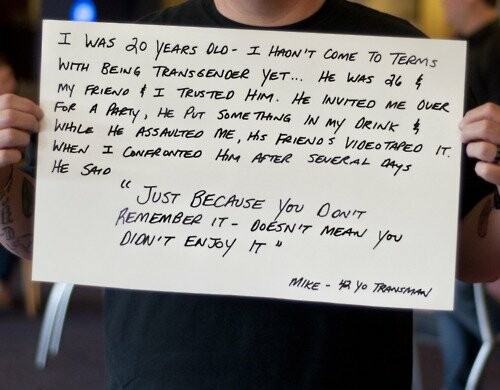 I WAS 20 YEARS OLD - I HADN'T COME TO TERMS
WITH BEING TRANSGENDER YET... HE WAS 26 &
MY FRIEND & I TRUSTED HIM. HE INVITED ME OVER
FOR A PARTY, HE PUT SOMETHING IN MY DRINK &
WHILE HE ASSAULTED ME, HIS FRIENDS VIDEOTAPED IT.
WHEN I CONFRONTED HIM AFTER SEVERAL DAYS
HE SAID
"JUST BECAUSE YOU DON'T
REMEMBER IT - DOESN'T MEAN YOU
DIDN'T ENJOY IT"
MIKE - 42 YO TRANSMAN